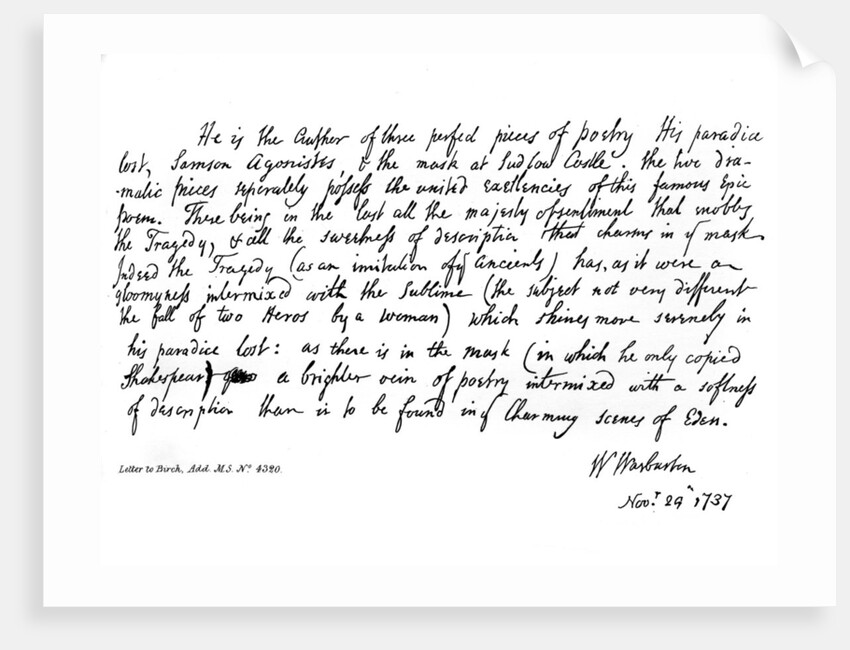 He is the Author of three perfect pieces of poetry His paradice
lost, Samson Agonistes, & the mask at Ludlow Castle. the two dra-
-matic pieces seperately possess the united excellencies of this famous Epic
poem. There being in the last all the majesty of sentiment that enobles
the Tragedy, & all the sweetness of descriptio that charms in ye mask
Indeed the Tragedy (as an imitation of ye Ancients) has, as it were a
gloomyness intermixed with the Sublime (the subject not very different
the fall of two Heros by a woman) which shines more serenely in
his paradice lost: as there is in the mask (in which he only copied
Shakespear) a brighter vein of poetry intermixed with a softness
of description than is to be found in ye Charming scenes of Eden.
W Warburton
Letter to Birch, Add. M.S. No. 4320.
Novr. 29 1737